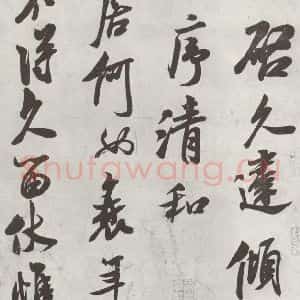 啓久違傾
序清和
居何如衰年
不得久留伏惟
shufawang.cn